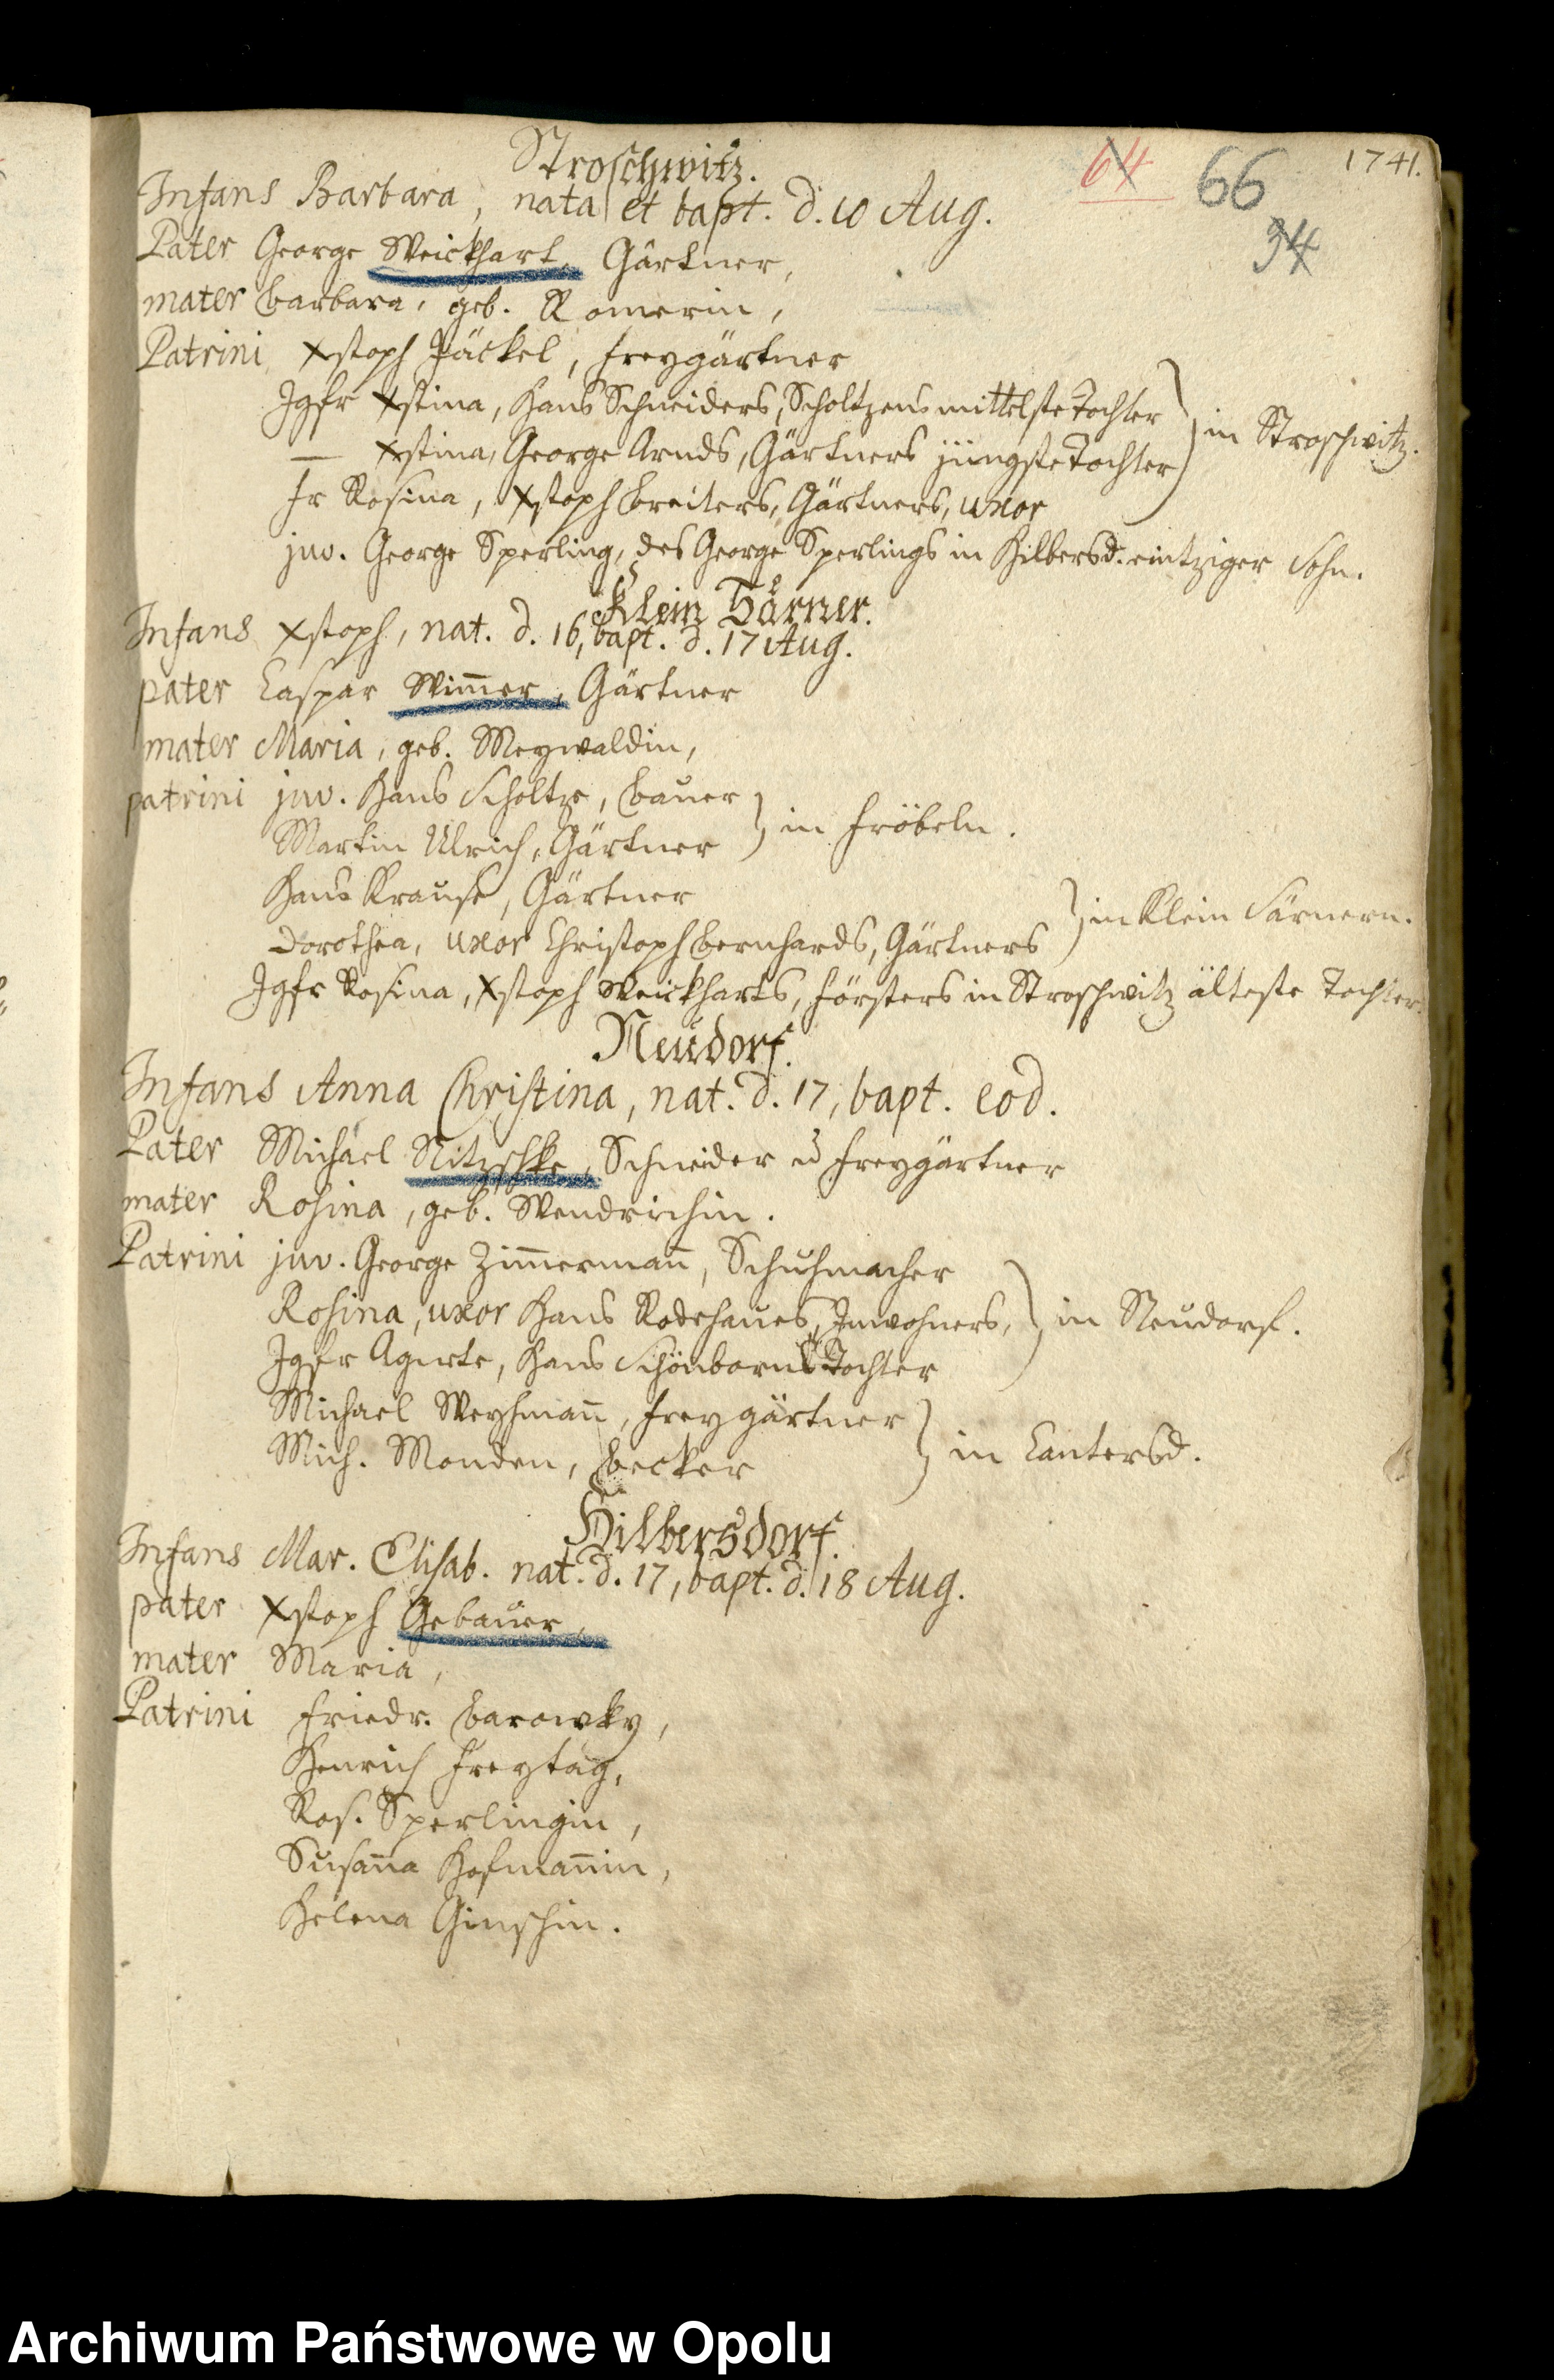 1741.
64 66
34
Stroschwitz.
Infans Barbara, nata et bapt. d. 10 Aug.
Pater George Weickhart, Gärtner,
mater Barbara, geb. Romerin,
Patrini Xstoph Jäckel, Freygärtner
Jgfr Xstina, Hans Schneiders, Scholtzens mittelste Tochter
— Xstina, George Arnds, Gärtners jüngste Tochter } in Stroschwitz.
Fr Rosina, Xstoph Breiters, Gärtners, uxor
juv. George Sperling, des George Sperlings in Hilbersd. eintziger Sohn.
Klein Särner.
Infans Xstoph, nat. d. 16, bapt. d. 17 Aug.
pater Caspar Wim̄er, Gärtner
mater Maria, geb. Meywaldin,
patrini juv. Hans Scholtze, Bauer
Martin Ulrich, Gärtner } in Fröbeln.
Hans Krause, Gärtner
Dorothea, uxor Christoph Bernhards, Gärtners } in Klein Särnern.
Jgfr Rosina, Xstoph Weickharts, Försters in Stroschwitz älteste Tochter.
Neudorf.
Infans Anna Christina, nat. d. 17, bapt. eod.
Pater Michael Nitzschke, Schneider u Freygärtner
mater Rosina, geb. Wendrichin.
Patrini juv. George Zim̄erman̄, Schuhmacher
Rosina, uxor Hans Rodehaues, Inwohners, } in Neudorf.
Jgfr Agnete, Hans Schönborns Tochter
Michael Weyhman̄, Freygärtner
Mich. Monden, Becker } in Cantersd.
Hilbersdorf.
Infans Mar. Elisab. nat. d. 17, bapt. d. 18 Aug.
pater Xstoph Gebauer,
mater Maria,
Patrini Friedr. Barowky,
Henrich Freytag,
Ros. Sperlingin,
Susan̄a Hofman̄in,
Helena Ginschin.
Archiwum Państwowe w Opolu